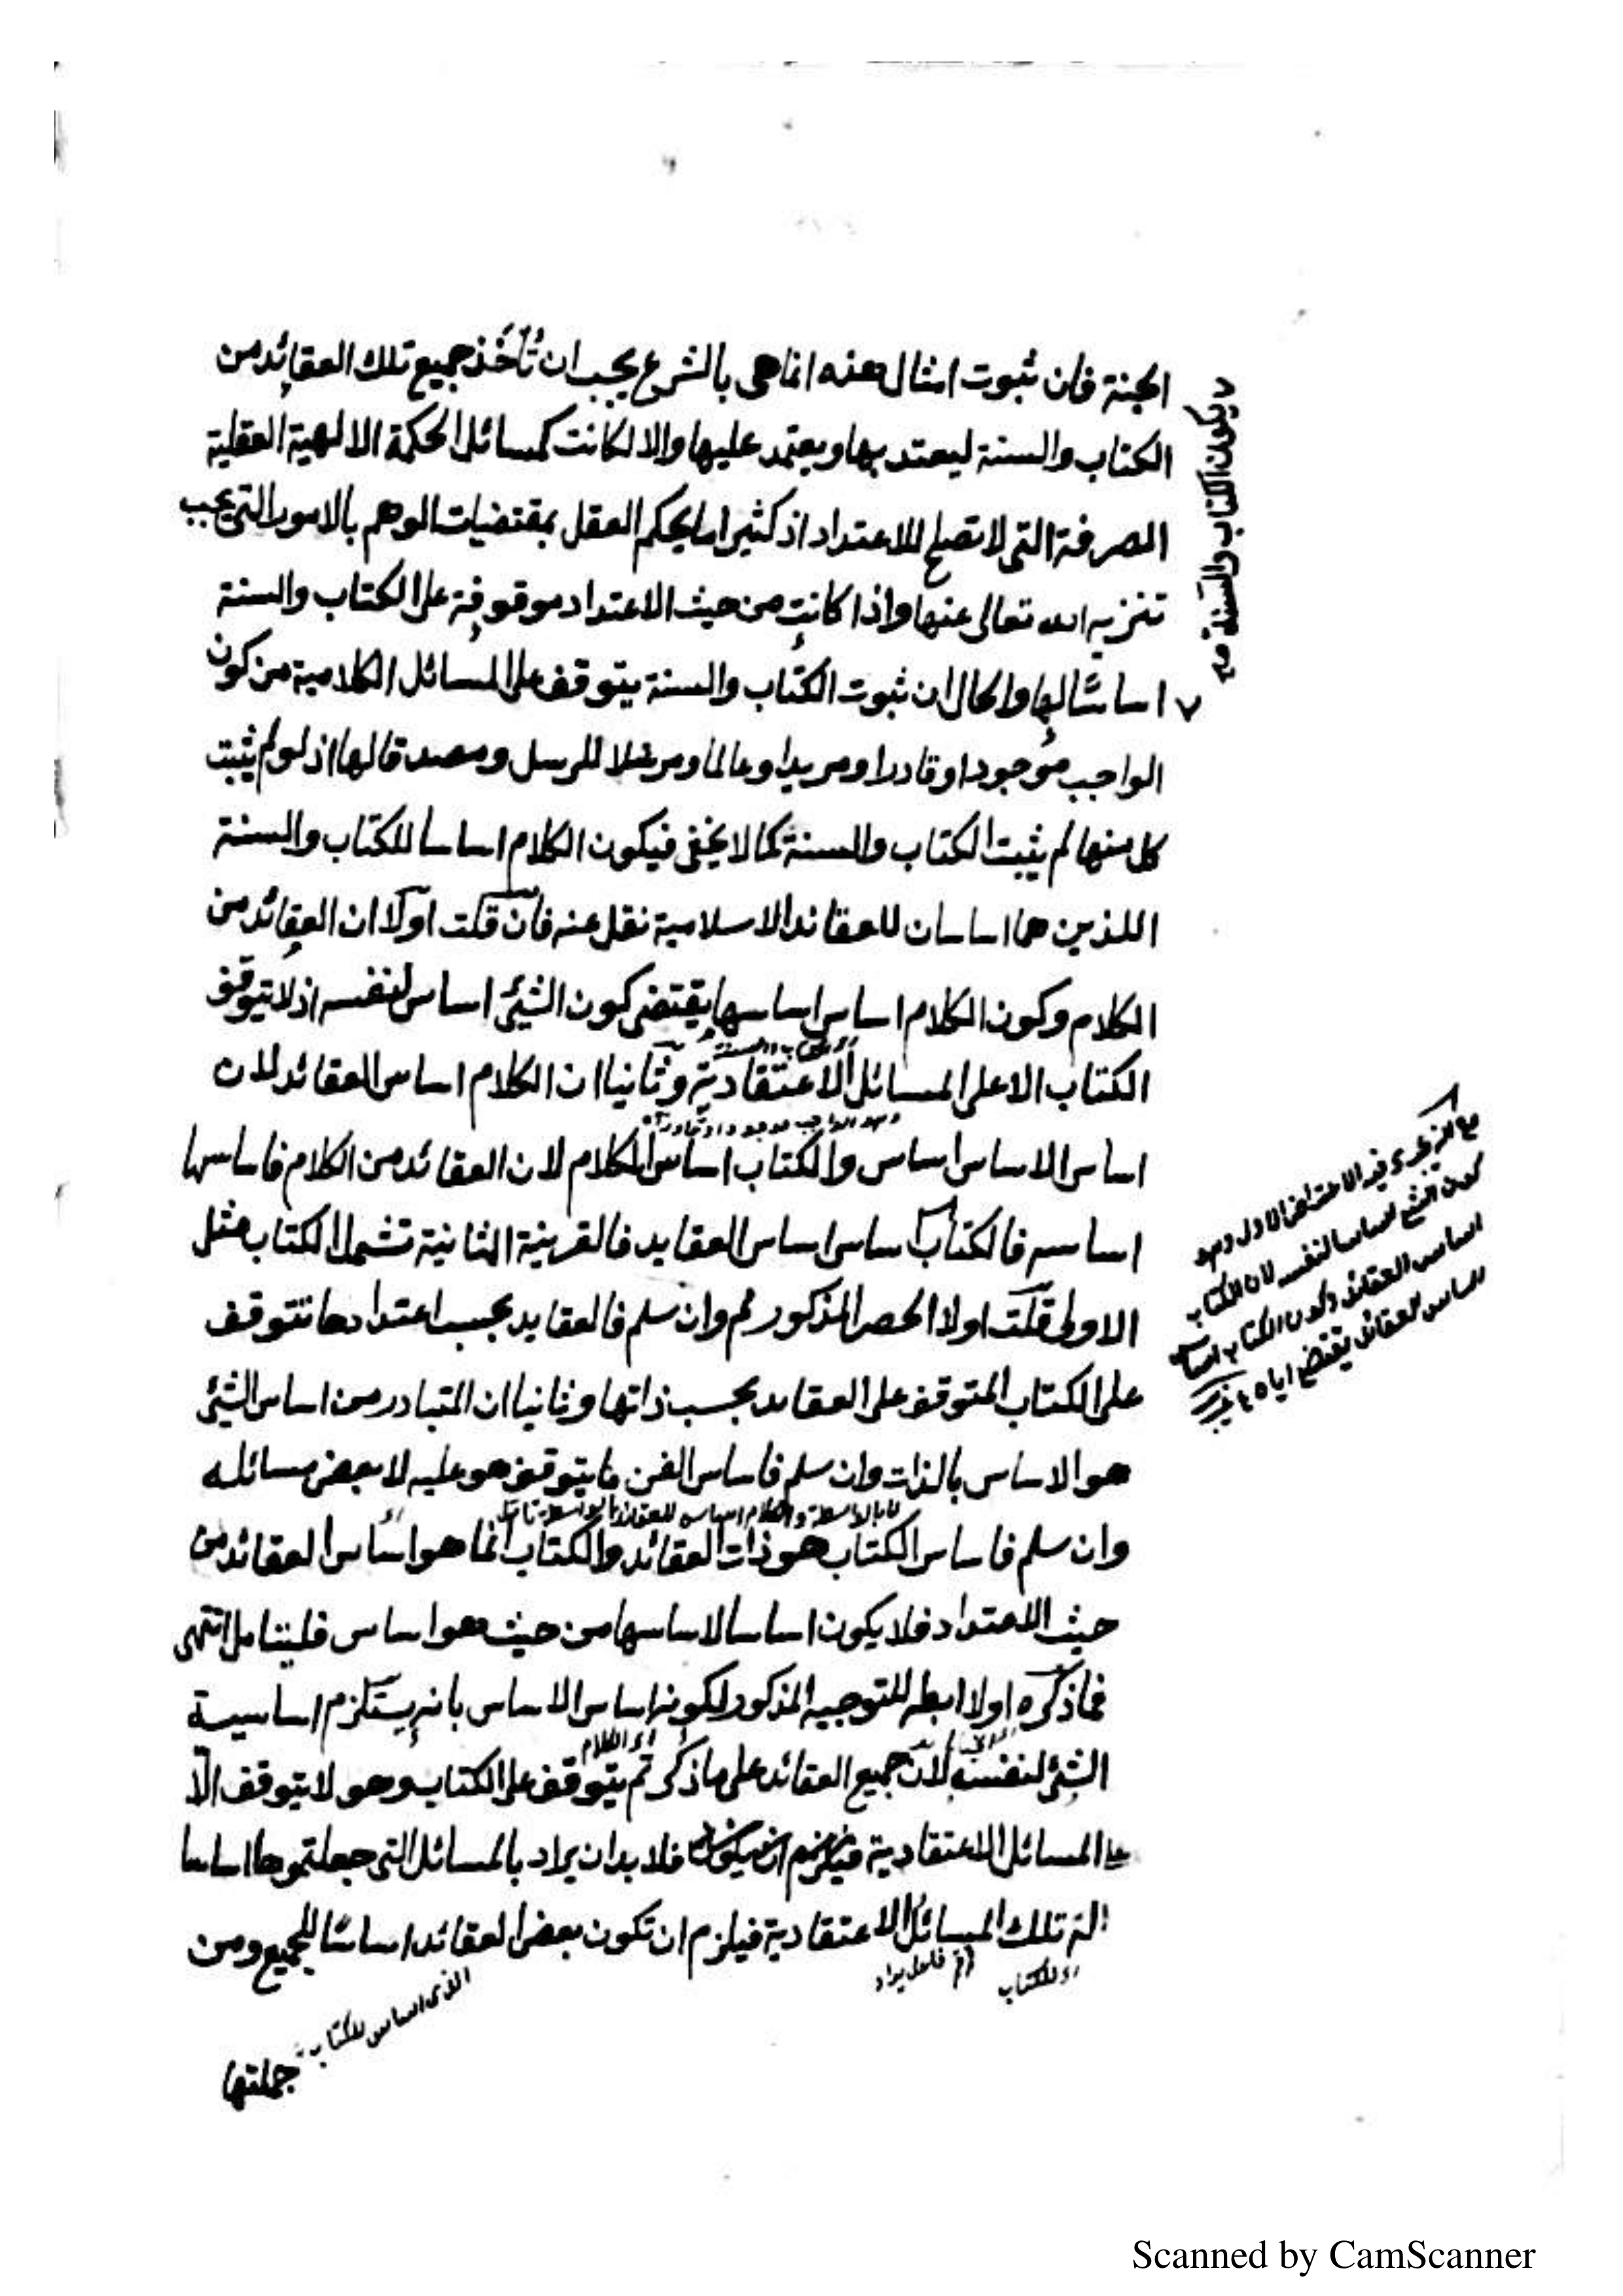 الجنة فان ثبوت امثال هذه انما هى بالشرع يجب ان تُأخَذ جميع تلك العقائد من
الكتاب والسنة ليعتد بها ويعتمد عليها والا لكانت كمسائل الحكمة الالهية العقلية
الصرفة التى لا تصلح للاعتداد اذ كثيرا ما يحكم العقل بمقتضيات الوهم بالامور التى يجب
تنزيه الله تعالى عنها واذا كانت من حيث الاعتداد موقوفة على الكتاب والسنة
٧ اساسًا لها والحال ان ثبوت الكتاب والسنة يتوقف على المسائل الكلامية من كون
الواجب موجودا وقادرا ومريدا وعالما ومرسلا للرسل ومصدقا لها اذ لو لم يثبت
كل منها لم يثبت الكتاب والسنة كما لا يخفى فيكون الكلام اساسا للكتاب والسنة
اللذين هما اساسان للعقائد الاسلامية نقل عنه فان قلت اولا ان العقائد من
الكلام وكون الكلام اساس اساسها يقتضى كون الشئ اساس لنفسه اذ لا يتوقف
الكتاب الا على المسائل الاعتقادية وثانيا ان الكلام اساس العقائد لان
اساس الاساس اساس والكتاب اساس الكلام لان العقائد من الكلام فاساسها
اساسه فالكتاب اساس اساس العقايد فالقرينة الثانية تشمل الكتاب مثل
الاولى قلت اولا الحصر المذكور مم وان سلم فالعقايد بحسب اعتدادها تتوقف
على الكتاب المتوقف على العقايد بحسب ذاتها وثانيا ان المتبادر من اساس الشئ
هو الاساس بالذات وان سلم فاساس الفن ما يتوقف هو عليه لا بعض مسائله
لا بالواسطة والكلام اساس للعقائد بالواسطة تامل
وان سلم فاساس الكتاب هو ذات العقائد والكتاب انما هو اساس العقائد من
حيث الاعتداد فلا يكون اساسا لاساسها من حيث هو اساس فليتامل انتهى
فما ذكره اولا ابطال للتوجيه المذكور لكونه اساس الاساس بانه يستلزم اساسية
اى الكلام
الشئ لنفسه لان جميع العقائد على ما ذكر تم يتوقف على الكتاب وهو لا يتوقف الّا
على المسائل الاعتقادية فلا بد ان يراد بالمسائل التى جعلتموها اساسا
له تلك المسائل الاعتقادية فيلزم ان تكون بعض العقائد اساسًا للجميع ومن
اى للكتاب
الذى اساس للكتاب
جملتها
٧ يكون الكتاب والسنة
كون الشئ اساسا لنفسه لان الكتاب
اساس العقائد وكون الكتاب اساسا